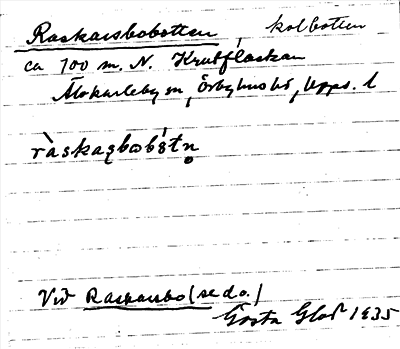 Raskarsbobotten, kolbotten
ca 700 m. N. Krutflaskan
Älvkarleby sn, Örbyhus hd, Upps. l
ràskaqbobåtn̥
Vid Raskarsbo (se d.o.)
Gösta Glad 1935